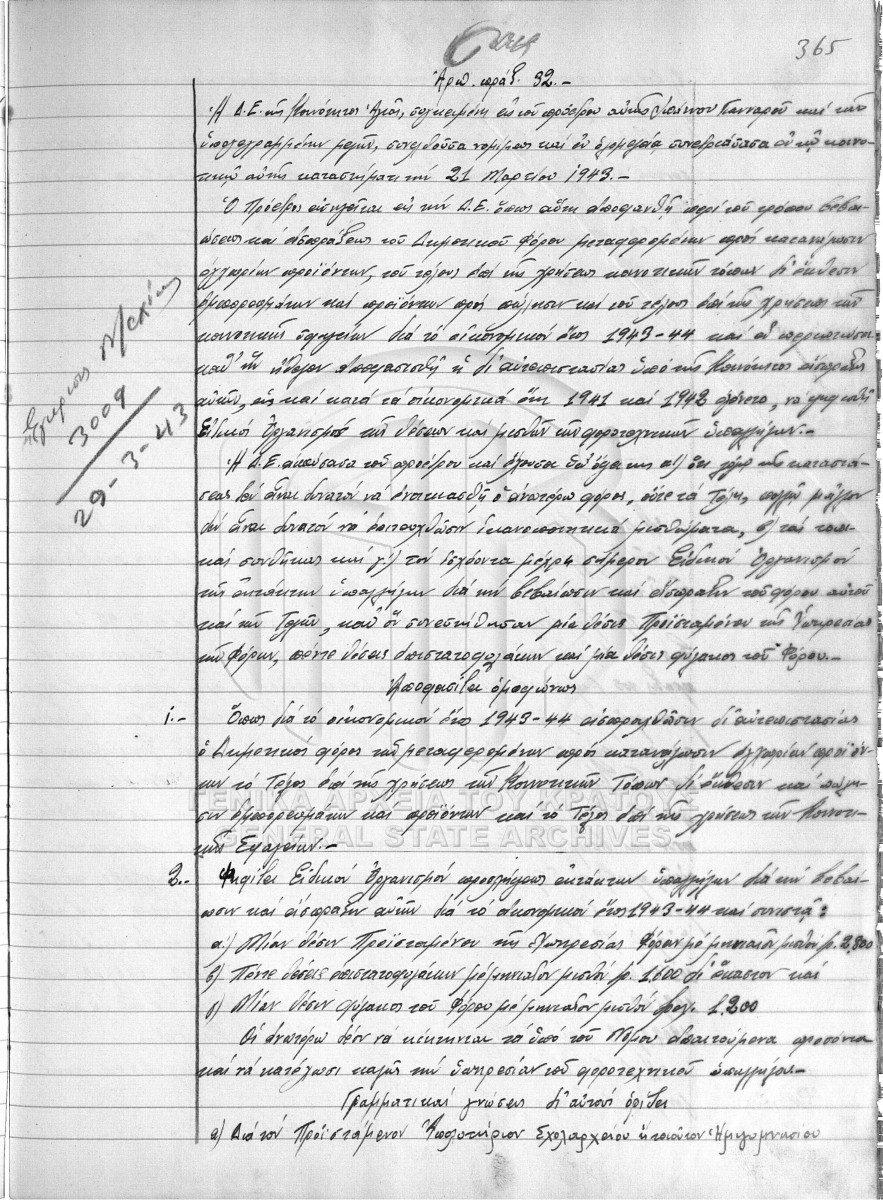 365
Ἀριθ. πράξ. 32.-
Ἡ Δ.Ε. τῆς Κοινότητος Ἁγιᾶς, συγκειμένη ἐκ τοῦ προέδρου αὐτῆς καὶ τῶν
ὑπογεγραμμένων μελῶν, συνελθοῦσα νομίμως καὶ ἐν ὁλομελείᾳ συνεδριάσασα ἐν τῷ κοινο-
τικῷ αὐτῆς καταστήματι τὴν 21 Μαρτίου 1943.-
Ὁ Πρόεδρος εἰσηγεῖται εἰς τὴν Δ.Ε. ὅπως αὕτη ἀποφανθῇ περὶ τοῦ τρόπου βεβαι-
ώσεως καὶ εἰσπράξεως τοῦ Δημοτικοῦ Φόρου μεταφερομένων πρὸς κατανάλωσιν
ἐγχωρίων προϊόντων, τοῦ τέλους ἐπὶ τῆς χρήσεως κοινοτικῶν τόπων δι' ἔκθεσιν
ἐμπορευμάτων καὶ προϊόντων πρὸς πώλησιν καὶ τοῦ τέλους ἐπὶ τῆς χρήσεως τῶν
κοινοτικῶν σφαγείων διὰ τὸ οἰκονομικὸν ἔτος 1943-44 καὶ ἐν περιπτώσει
καθ' ἣν ἤθελεν ἀποφασισθῇ ἡ δι' αὐτεπιστασίας ὑπὸ τῆς Κοινότητος εἴσπραξις
αὐτῶν, ὡς καὶ κατὰ τὰ οἰκονομικὰ ἔτη 1941 καὶ 1942 ἐγένετο, νὰ ψηφισθῇ
Εἰδικὸς Ὀργανισμὸς τῆς θέσεως καὶ μισθῶν τῶν φοροτεχνικῶν ὑπαλλήλων.-
Ἡ Δ.Ε. ἀκούσασα τοῦ προέδρου καὶ ἔχουσα ὑπ' ὄψει της α) ὅτι λόγῳ τῆς καταστά-
σεως δὲν εἶναι δυνατὸν νὰ ἐνοικιασθῇ ὁ ἀνωτέρω φόρος, οὔτε τὰ Τέλη, πολλῷ μᾶλλον
δὲν εἶναι δυνατὸν νὰ ἐπιτευχθῶσιν ἱκανοποιητικὰ μισθώματα, β) τὰς τοπι-
κὰς συνθήκας καὶ γ) τὸν ἰσχύοντα μέχρι σήμερον Εἰδικὸν Ὀργανισμὸν
τῆς ἐκτάκτων ὑπαλλήλων διὰ τὴν βεβαίωσιν καὶ εἴσπραξιν τοῦ φόρου αὐτοῦ
καὶ τῶν Τελῶν, καθ' ὃν συνεστήθησαν μία θέσις Προϊσταμένου τῆς Ὑπηρεσίας
τῶν Φόρων, πέντε θέσεις ἐπιστατοφυλάκων καὶ μία θέσις φύλακος τοῦ Φόρου.-
Ἀποφασίζει ὁμοφώνως
1.- Ὅπως διὰ τὸ οἰκονομικὸν ἔτος 1943-44 εἰσπραχθῶσιν δι' αὐτεπιστασίας
ὁ Δημοτικὸς φόρος τῶν μεταφερομένων πρὸς κατανάλωσιν ἐγχωρίων προϊόν-
των τὸ Τέλος ἐπὶ τῆς χρήσεως τῶν Κοινοτικῶν Τόπων δι' ἔκθεσιν καὶ πώλη-
σιν ἐμπορευμάτων καὶ προϊόντων καὶ τὸ Τέλος ἐπὶ τῆς χρήσεως τῶν Κοινοτι-
κῶν Σφαγείων.-
2.- Ψηφίζει Εἰδικὸν Ὀργανισμὸν προσλήψεως ἐκτάκτων ὑπαλλήλων διὰ τὴν βεβαί-
ωσιν καὶ εἴσπραξιν αὐτῶν διὰ τὸ οἰκονομικὸν ἔτος 1943-44 καὶ συνιστᾷ:
α) Μίαν θέσιν Προϊσταμένου τῆς Ὑπηρεσίας Φόρων μὲ μηνιαῖον μισθὸν δρ. 2.800
β) Πέντε θέσεις ἐπιστατοφυλάκων μὲ μηνιαῖον μισθὸν δρ. 1.600 δι' ἕκαστον καὶ
γ) Μίαν θέσιν φύλακος τοῦ Φόρου μὲ μηνιαῖον μισθὸν δραχ. 1.200
Οἱ ἀνωτέρω δέον νὰ κέκτηνται τὰ ὑπὸ τοῦ Νόμου ἀπαιτούμενα προσόντα
καὶ νὰ κατέχωσι καλῶς τὴν ὑπηρεσίαν τοῦ φοροτεχνικοῦ ὑπαλλήλου.-
Γραμματικαὶ γνώσεις δι' αὐτοὺς ὁρίζει
α) Διὰ τὸν Προϊστάμενον Ἀπολυτήριον Σχολαρχείου ἢ τοιοῦτον Ἡμιγυμνασίου
Ἔγκρισις
3009
29-3-43
ΓΕΝΙΚΑ ΑΡΧΕΙΑ ΤΟΥ ΚΡΑΤΟΥΣ
GENERAL STATE ARCHIVES